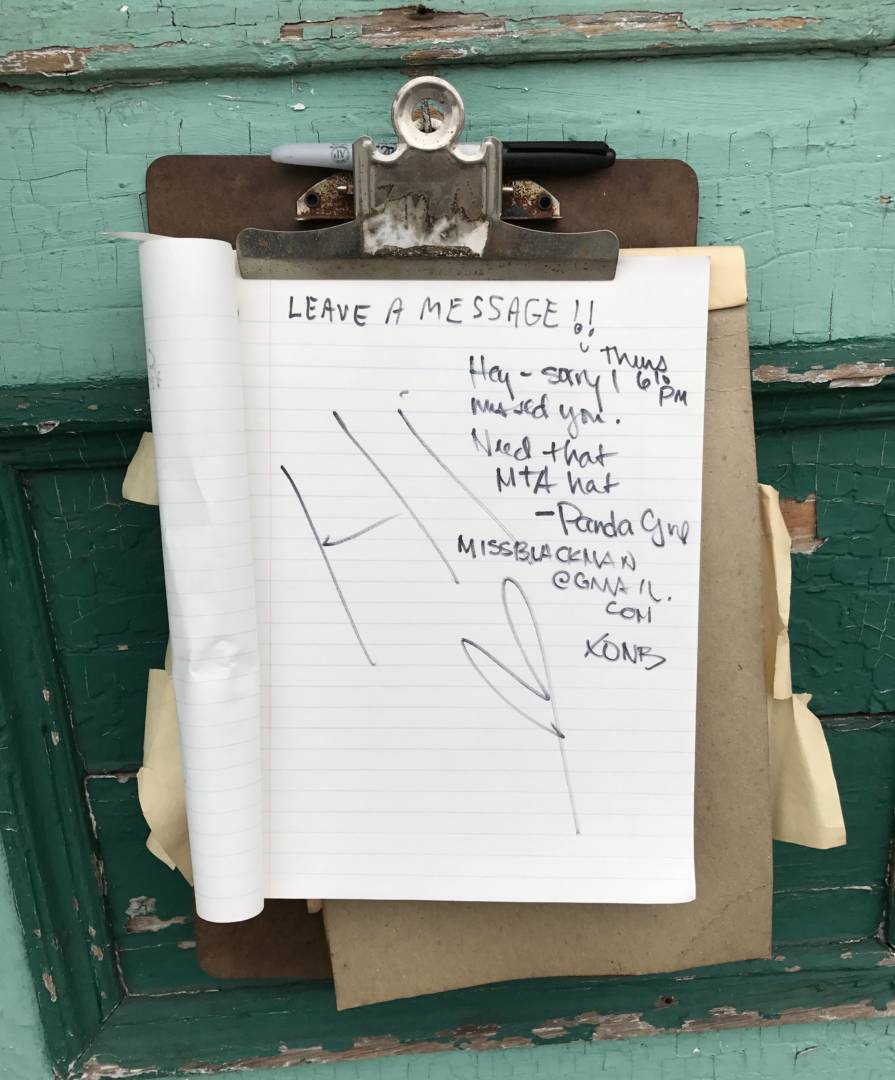 LEAVE A MESSAGE!!
Thurs
Hey - sorry I
610
PM
missed you.
Need that
MTA hat
- Panda Girl
Hi
MISSBLACKMAN
@GMAIL.
COM
XONB